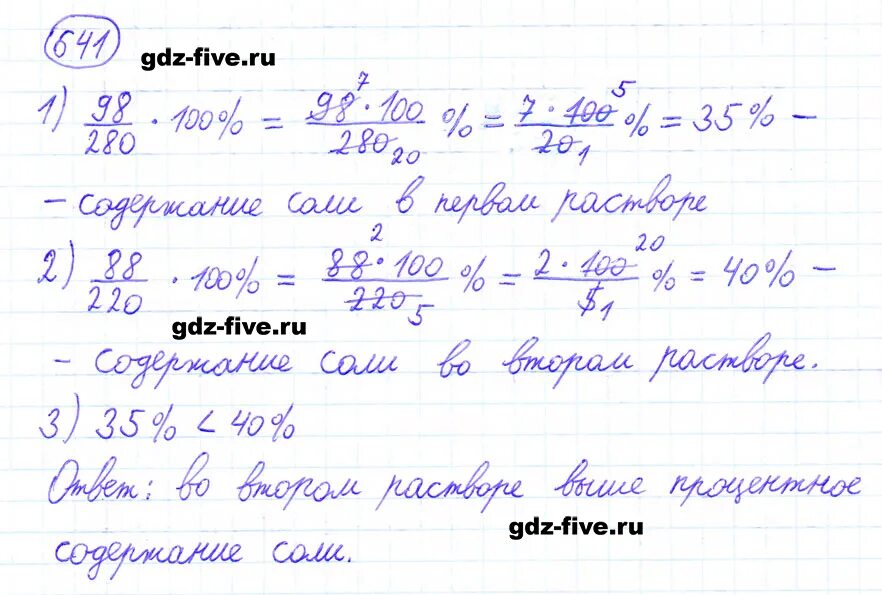 641
gdz-five.ru
1) 98/280 · 100% = 98⁷ · 100/280₂₀ % = 7 · 100⁵/20₁ % = 35% –
– содержание соли в первом растворе
2) 88/220 · 100% = 88² · 100/220₅ % = 2 · 100²⁰/5₁ % = 40% –
gdz-five.ru
– содержание соли во втором растворе.
3) 35% < 40%
Ответ: во втором растворе выше процентное
gdz-five.ru
содержание соли.